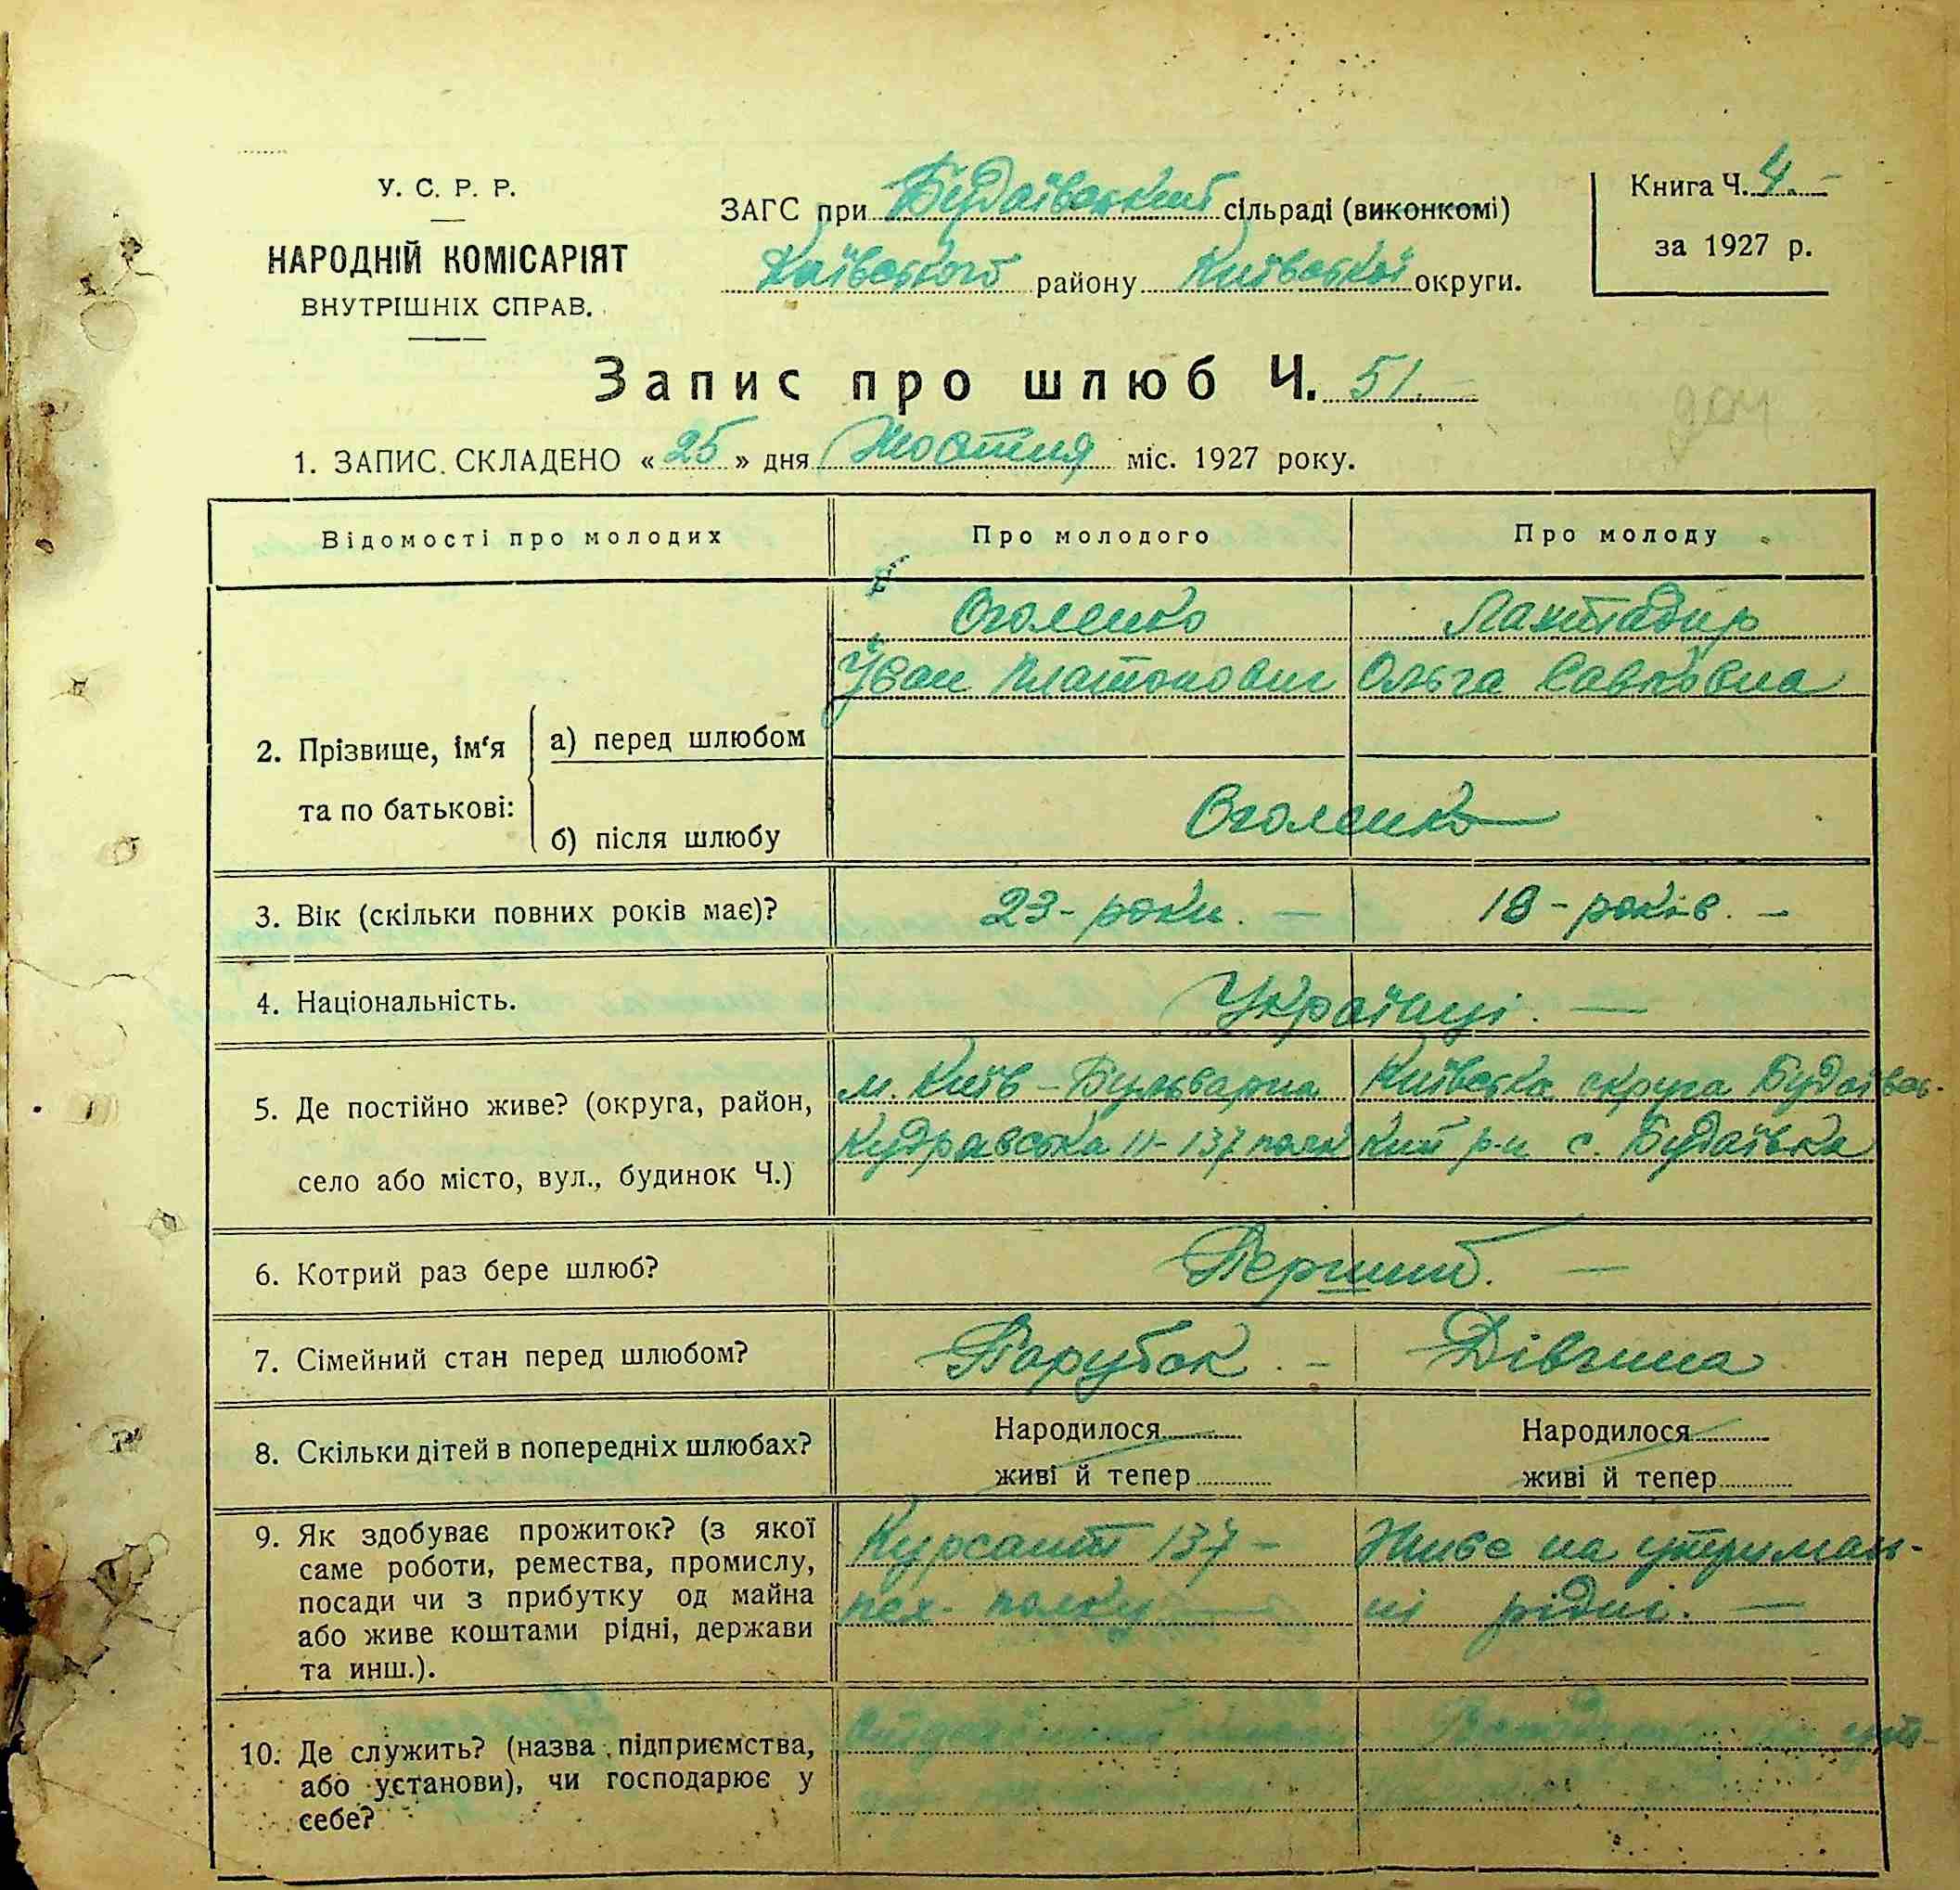 У. С. Р. Р.
НАРОДНІЙ КОМІСАРІЯТ
ВНУТРІШНІХ СПРАВ.
ЗАГС при Будаївський сільраді (виконкомі)
району Київської округи.
Книга Ч. 4. –
за 1927 р.
Запис про шлюб Ч. 51.
1. ЗАПИС СКЛАДЕНО « 25 » дня Жовтня міс. 1927 року.
Відомості про молодих
Про молодого
Про молоду
2. Прізвище, ім‘я
та по батькові:
а) перед шлюбом
б) після шлюбу
Оголенко
Іван Платонович
Ольга
Оголенко
3. Вік (скільки повних років має)?
23 - роки. –
18 - років. –
4. Національність.
Українці. –
5. Де постійно живе? (округа, район,
село або місто, вул., будинок Ч.)
м. Київ – Бульварна
Кудрявська 11 - 137 полк
Київська округа Будаївсь-
кий р-н с. Будаївка
6. Котрий раз бере шлюб?
Перший. –
7. Сімейний стан перед шлюбом?
Парубок. –
Дівчина
8. Скільки дітей в попередніх шлюбах?
Народилося
живі й тепер
Народилося
живі й тепер
9. Як здобуває прожиток? (з якої
саме роботи, ремества, промислу,
посади чи з прибутку од майна
або живе коштами рідні, держави
та инш.).
Курсант 137 –
пех. полку
Живе на утриман-
ні рідні. –
10. Де служить? (назва підприємства,
або установи), чи господарює у
себе?